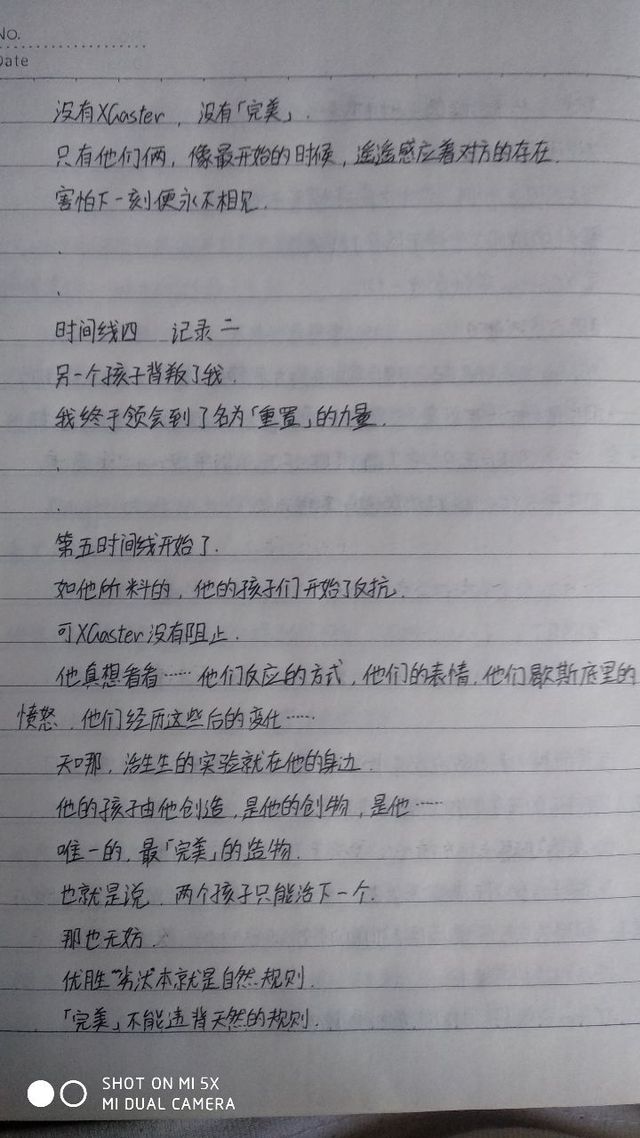 No.
Date
没有XGaster，没有「完美」.
只有他们俩，像最开始的时候，遥遥感应着对方的存在.
害怕下一刻便永不相见.
.
.
时间线四 记录二
另一个孩子背叛了我.
我终于领会到了名为「重置」的力量.
.
.
第五时间线开始了.
如他所料的，他的孩子们开始了反抗.
可XGaster没有阻止.
他真想看看……他们反应的方式，他们的表情，他们歇斯底里的
愤怒，他们经历这些后的变化……
天哪，活生生的实验就在他的身边.
他的孩子由他创造，是他的创物，是他……
唯一的，最「完美」的造物.
也就是说，两个孩子只能活下一个.
那也无妨.
优胜“劣汰”本就是自然规则.
「完美」不能违背天然的规则.
SHOT ON MI 5X
MI DUAL CAMERA